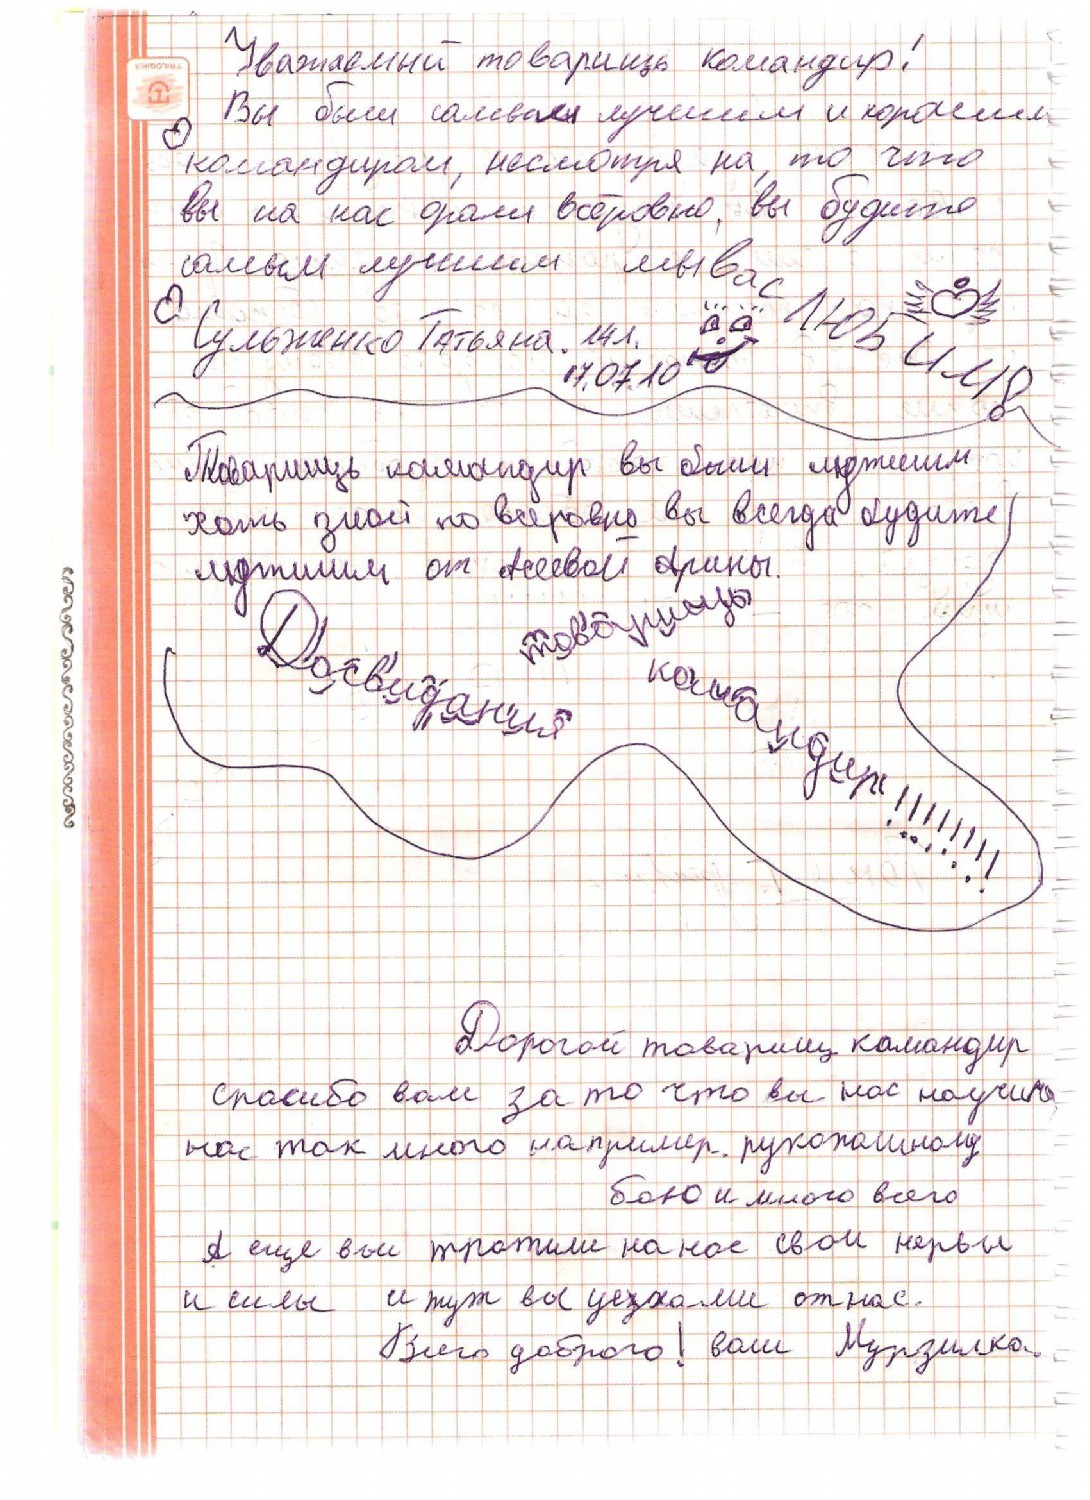 Уважаемый товарищь командир!
Вы были самым лучшим и хорошим
командиром, несмотря на, то что
вы на нас орали всёровно, вы будите
самым лучшим мы вас
ЛЮБИМ!
Сульженко Татьяна. 14л.
17.07.10
Товарищь командир вы были луджшим
хоть злой но всёровно вы всегда будите
луджшим от Арины.
Досвидания товарищь
командир!!!!!!!!
Дорогой товарищ камандир
спасибо вам за то что вы нас научили
нас так много например. рукопашному
бою и много всего
А еще вы тратили на нас свои нервы
и силы и тут вы уезхали от нас.
Всего доброго! ваш Мурзилка.